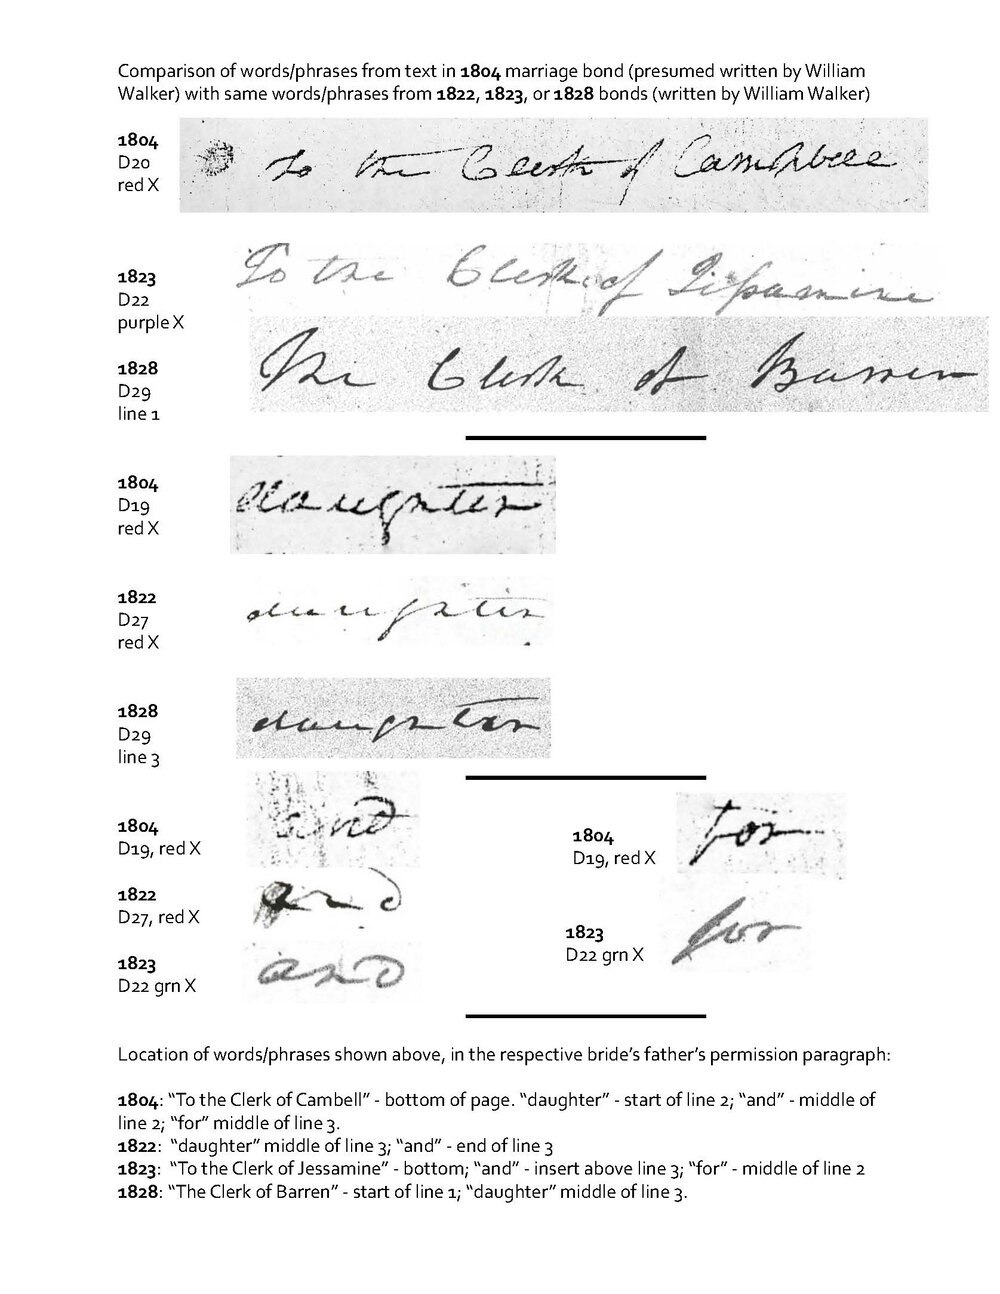 Comparison of words/phrases from text in 1804 marriage bond (presumed written by William
Walker) with same words/phrases from 1822, 1823, or 1828 bonds (written by William Walker)
1804
D20
red X
To the Clerk of Cambell
1823
D22
purple X
To the Clerk of Jessamine
1828
D29
line 1
The Clerk of Barren
1804
D19
red X
daughter
1822
D27
red X
daughter
1828
D29
line 3
daughter
1804
D19, red X
and
1804
D19, red X
for
1822
D27, red X
and
1823
D22 grn X
for
1823
D22 grn X
and
Location of words/phrases shown above, in the respective bride’s father’s permission paragraph:
1804: “To the Clerk of Cambell” - bottom of page. “daughter” - start of line 2; “and” - middle of
line 2; “for” middle of line 3.
1822:  “daughter” middle of line 3; “and” - end of line 3
1823:  “To the Clerk of Jessamine” - bottom; “and” - insert above line 3; “for” - middle of line 2
1828: “The Clerk of Barren” - start of line 1; “daughter” middle of line 3.